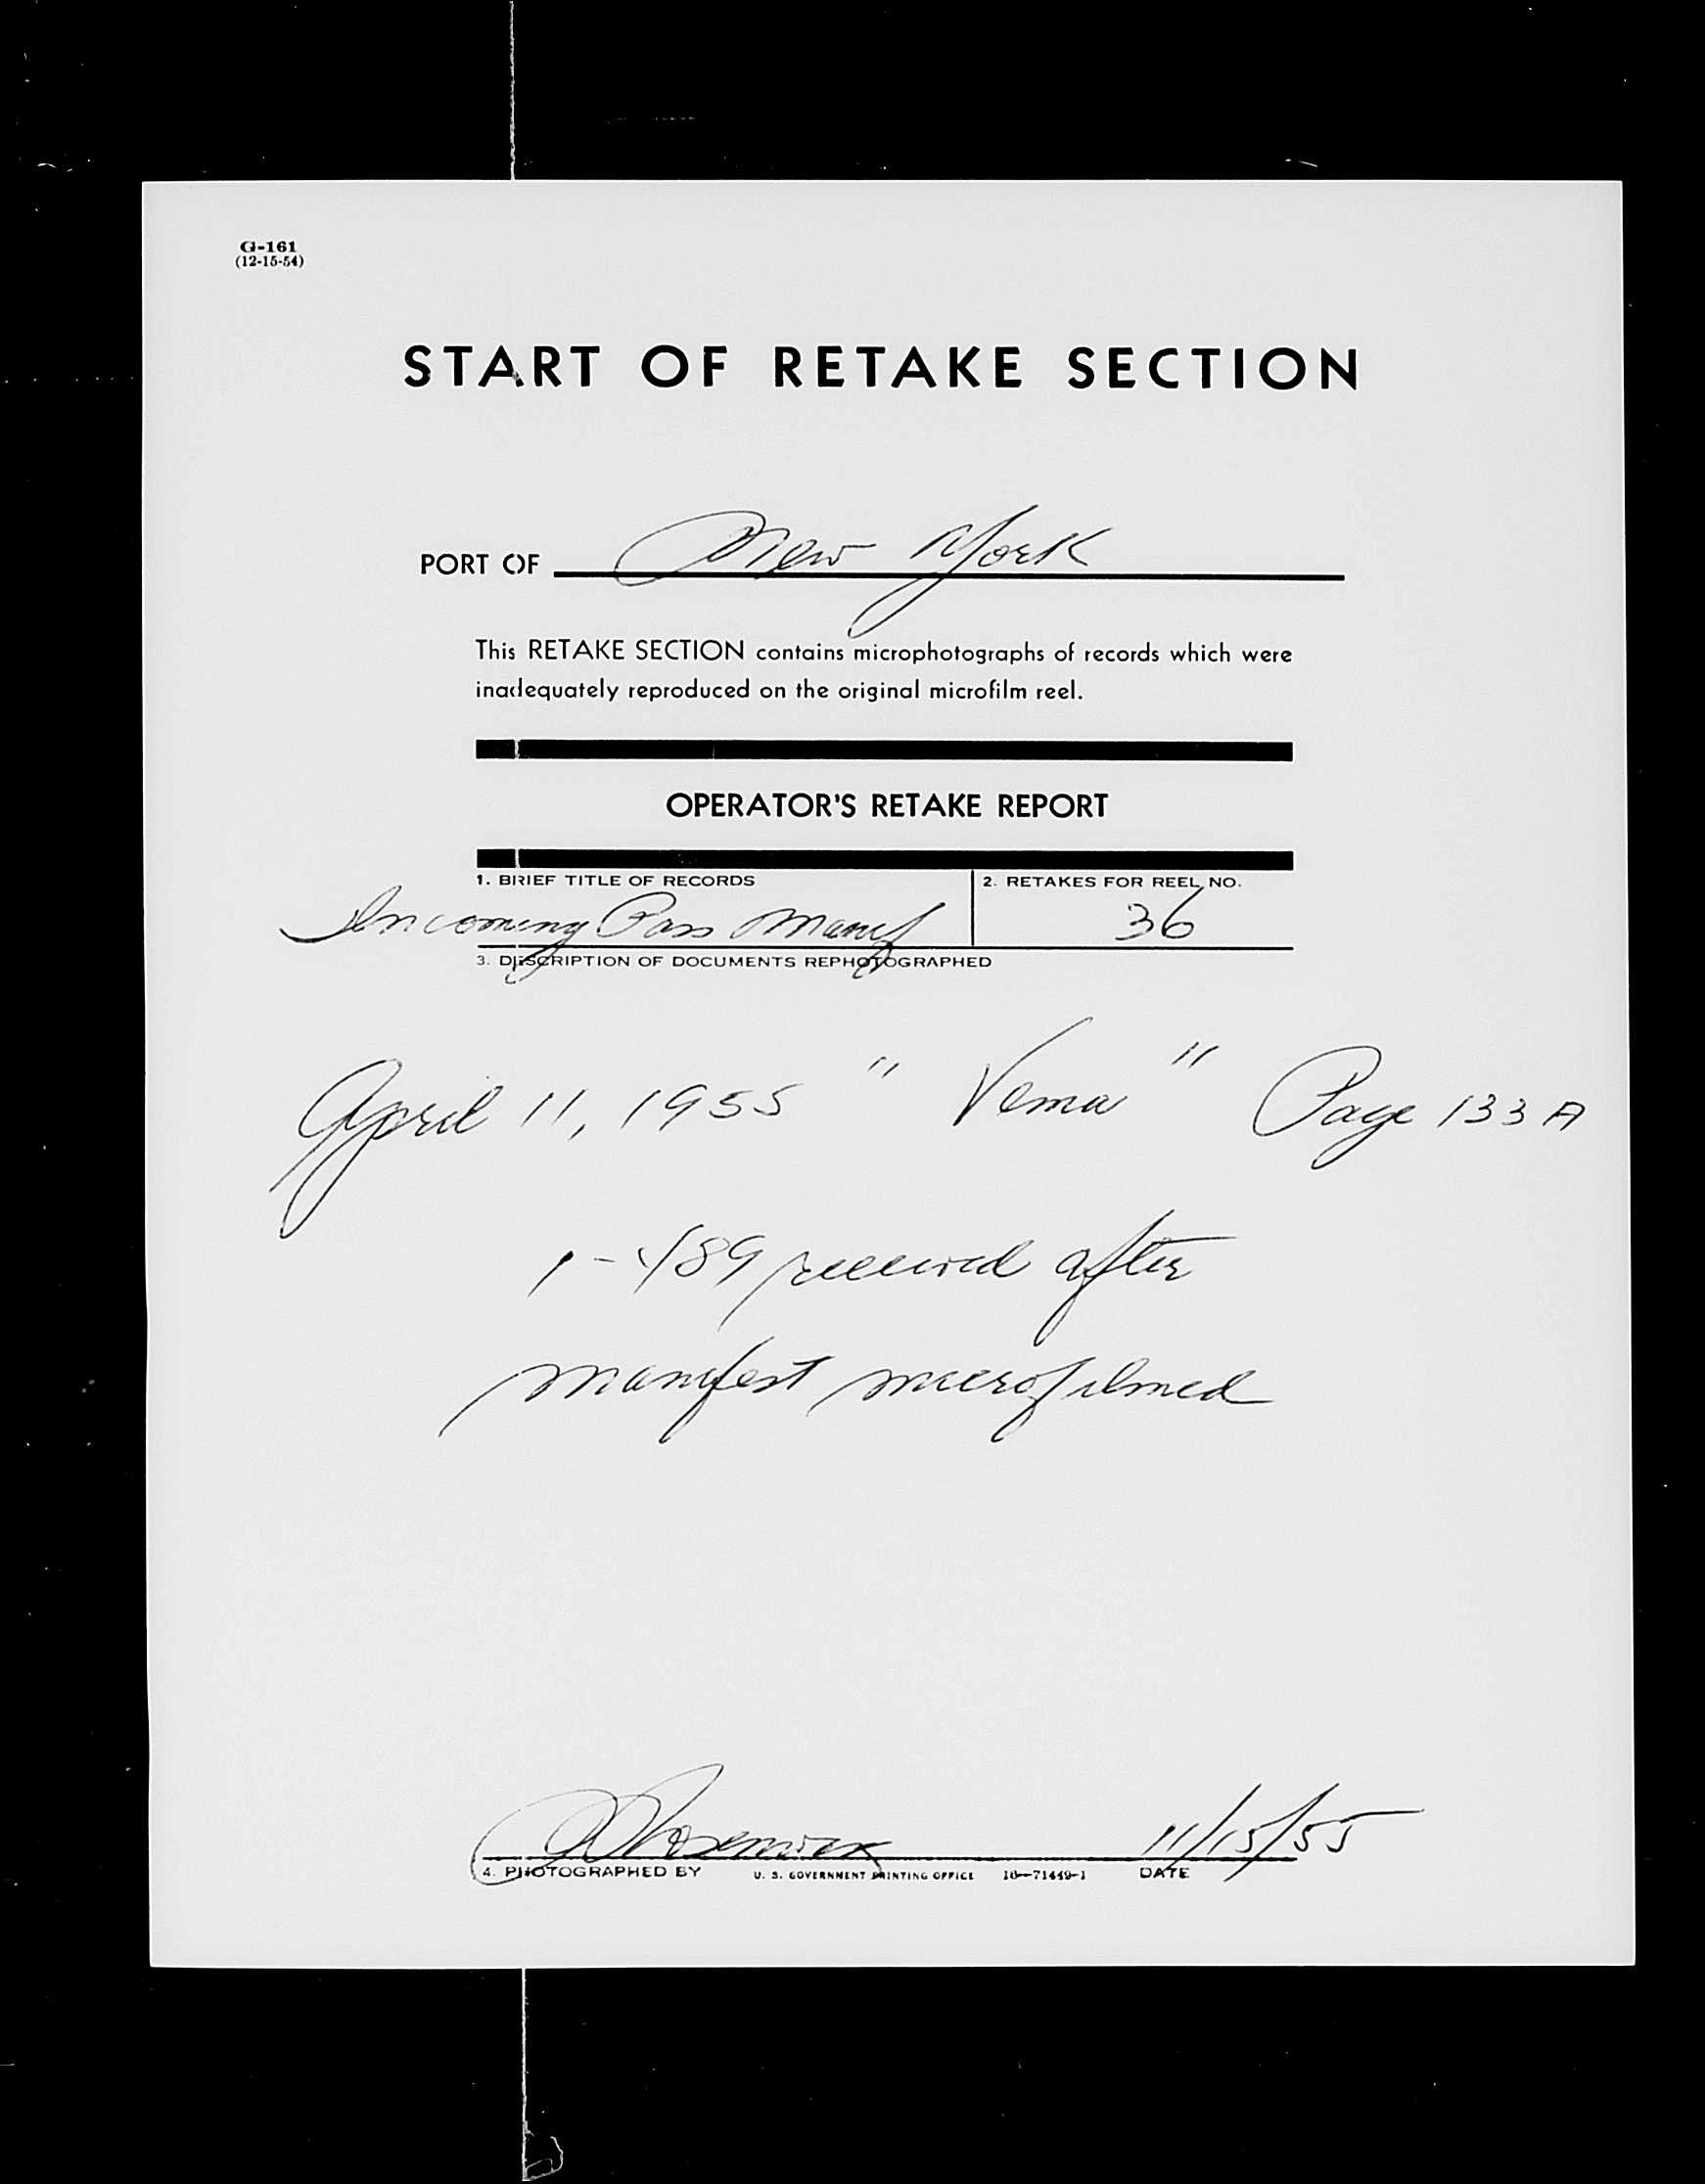 G-161
(12-15-54)
START OF RETAKE SECTION
PORT OF New York
This RETAKE SECTION contains microphotographs of records which were
inadequately reproduced on the original microfilm reel.
OPERATOR'S RETAKE REPORT
1. BRIEF TITLE OF RECORDS
Incoming Pass Manif
2. RETAKES FOR REEL NO.
36
3. DESCRIPTION OF DOCUMENTS REPHOTOGRAPHED
April 11, 1955 " Vema " Page 133 A
1-489 received after
manifest microfilmed
11/15/55
4. PHOTOGRAPHED BY U. S. GOVERNMENT PRINTING OFFICE 16—71449-1 DATE